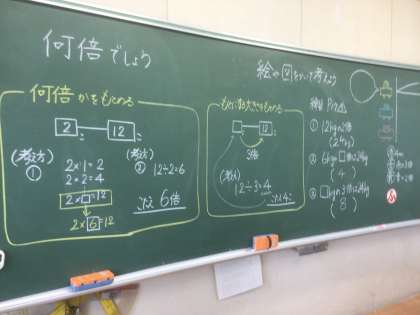 何倍でしょう
何倍かをもとめる
2 12
(考え方)
①
2×1=2
2×2=4
2×□=12
2×6=12
②
12÷2=6
答え 6倍
絵の図をかいて考えよう
もとになる大きさをもとめる
□ 12
3倍
(考え方)
12÷3=4
答え 4
練習
① 12kgの2倍
(24kg)
② 6kgの□倍は24kg
(4)
③ □kgの3倍は24kg
(8)